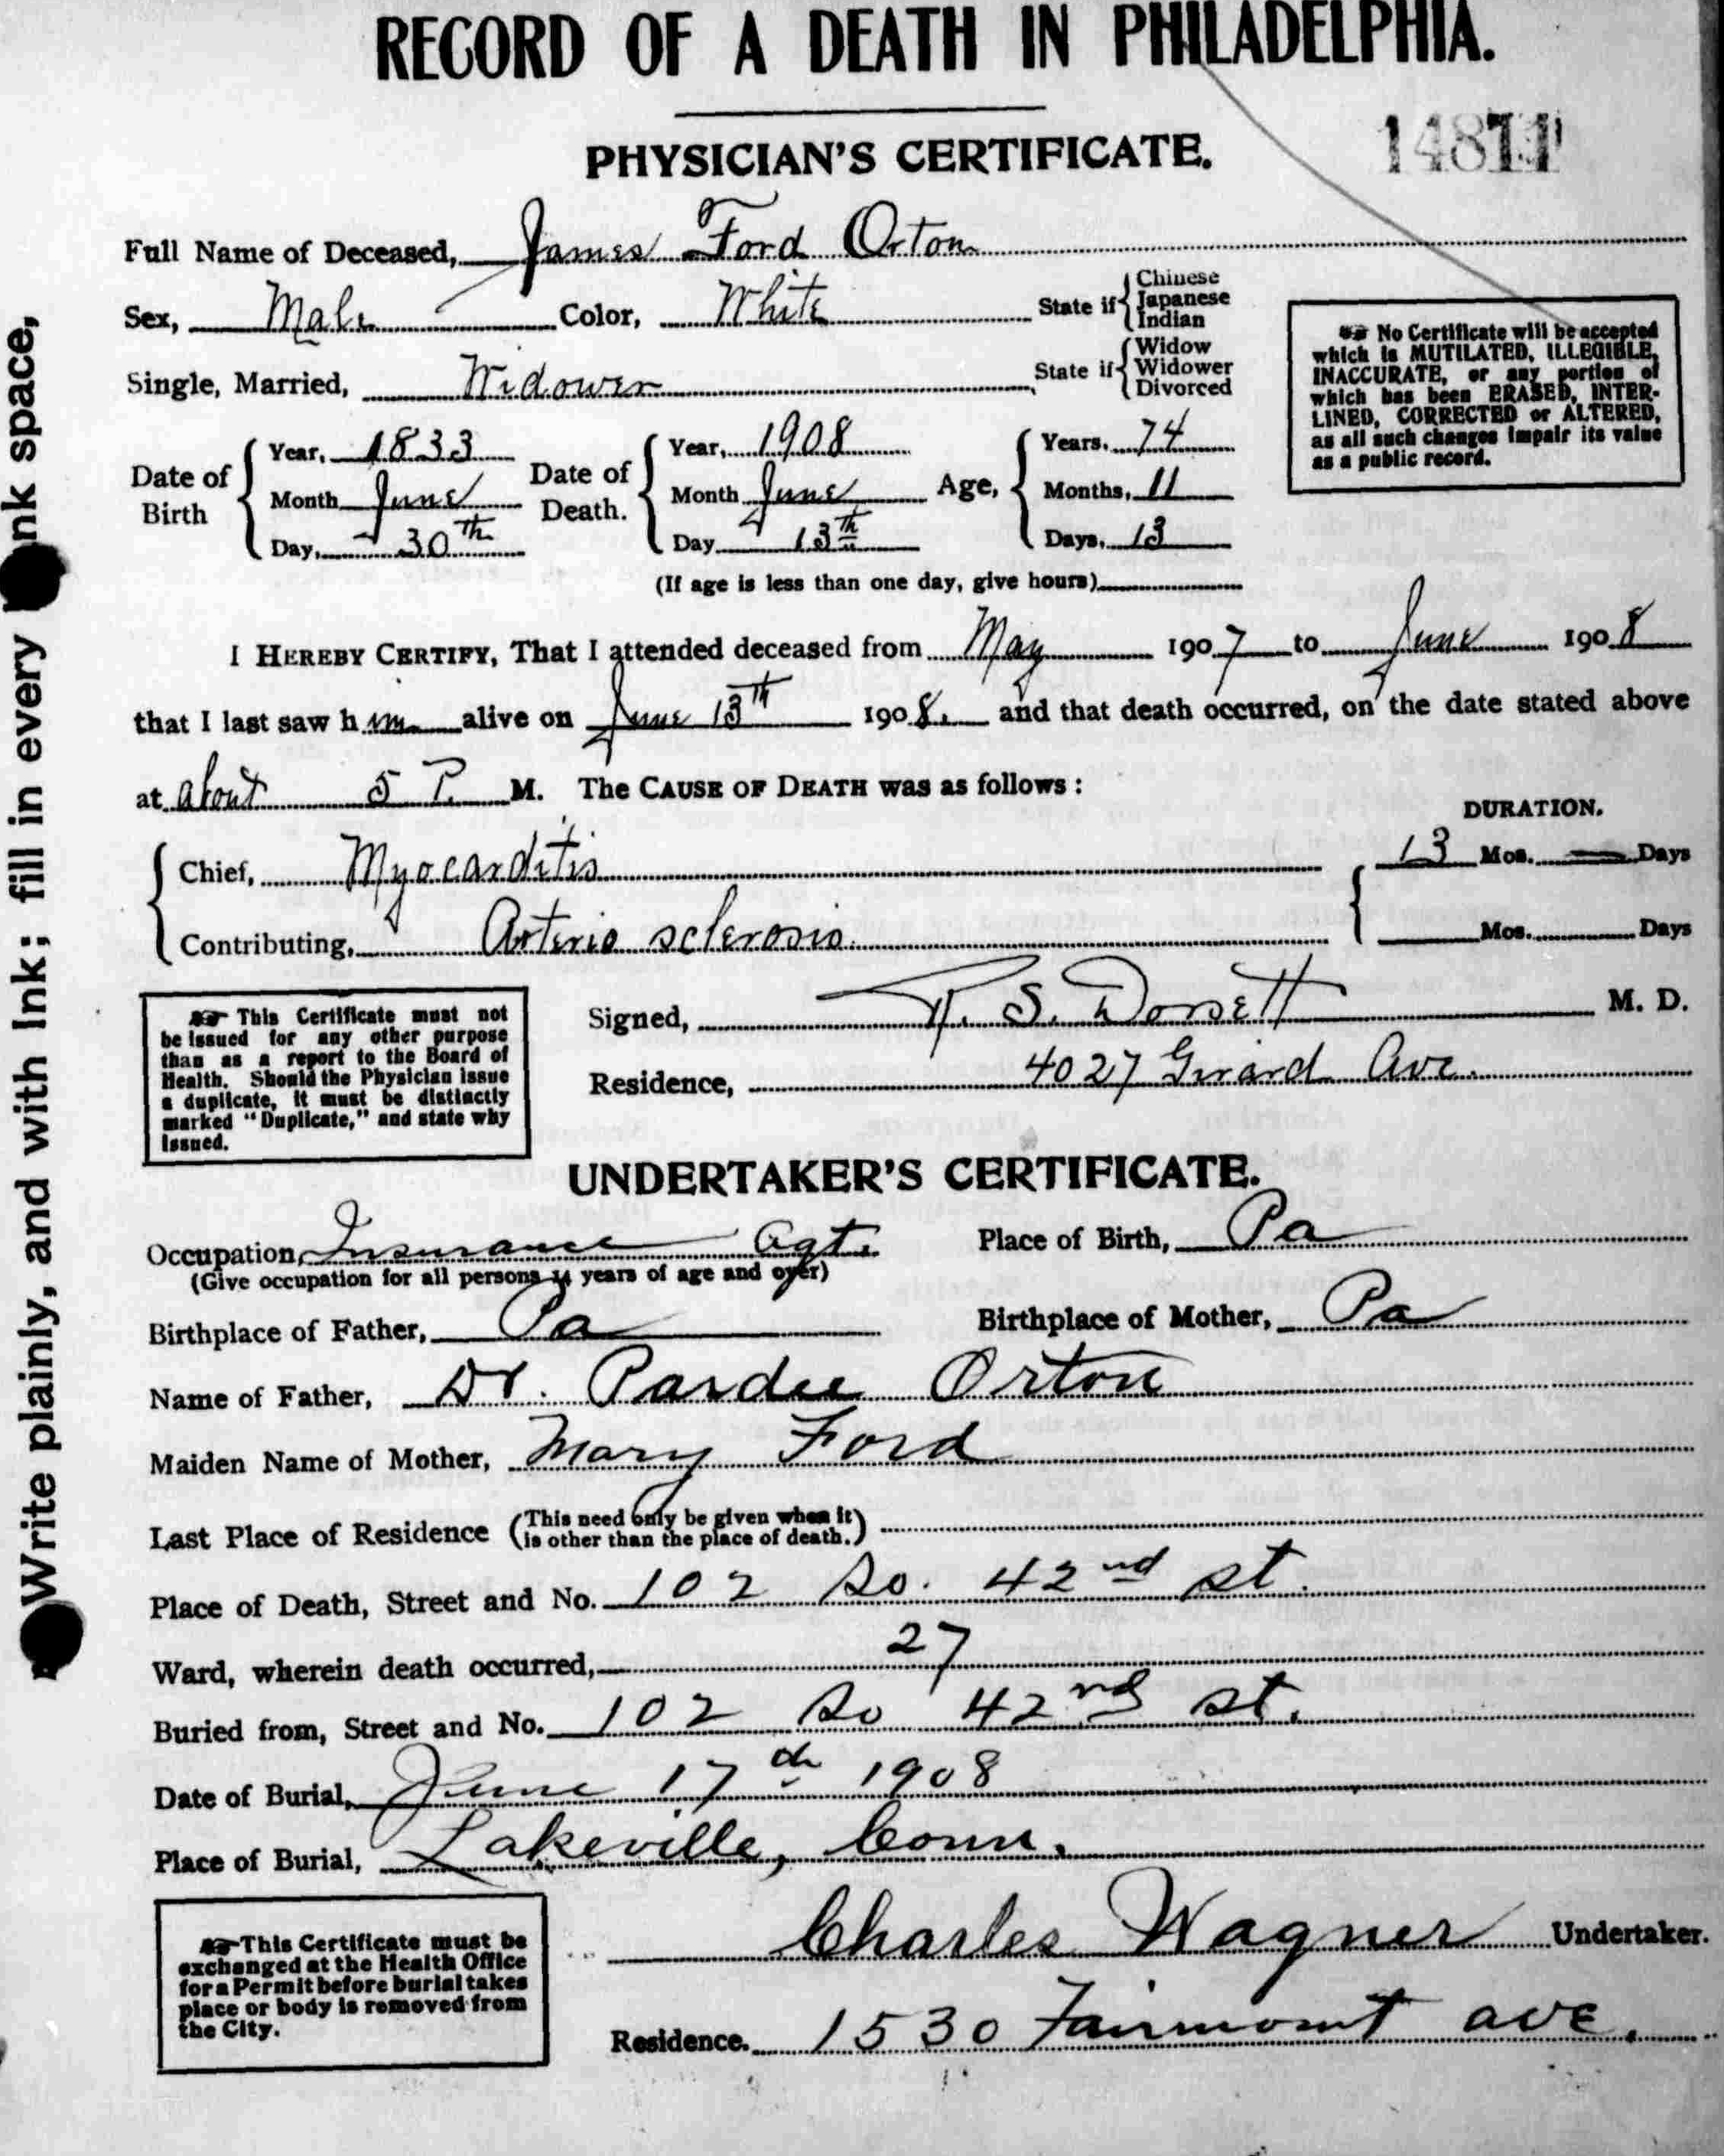 RECORD OF A DEATH IN PHILADELPHIA.
PHYSICIAN'S CERTIFICATE.
Full Name of Deceased, James Ford Orton
Sex, Male Color, White State if { Chinese Japanese Indian
Single, Married, Widower State if { Widow Widower Divorced
☞ No Certificate will be accepted
which is MUTILATED, ILLEGIBLE,
INACCURATE, or any portion of
which has been ERASED, INTER-
LINED, CORRECTED or ALTERED,
as all such changes impair its value
as a public record.
Date of Birth { Year, 1833 Month June Day, 30th
Date of Death. { Year, 1908 Month June Day 13th
Age, { Years, 74 Months, 11 Days, 13
(If age is less than one day, give hours)
I HEREBY CERTIFY, That I attended deceased from May 1907 to June 1908
that I last saw him alive on June 13th 1908. and that death occurred, on the date stated above
at about 5 P. M. The CAUSE OF DEATH was as follows:
DURATION.
Chief, Myocarditis 13 Mos. — Days
Contributing, Arterio sclerosis. Mos. Days
☞ This Certificate must not
be issued for any other purpose
than as a report to the Board of
Health. Should the Physician issue
a duplicate, it must be distinctly
marked "Duplicate," and state why
issued.
Signed, S. Dorsett M. D.
Residence, 4027 Girard Ave.
UNDERTAKER'S CERTIFICATE.
Occupation, Insurance Agt. Place of Birth, Pa
(Give occupation for all persons 14 years of age and over)
Birthplace of Father, Pa Birthplace of Mother, Pa
Name of Father, Dr. Pardee Orton
Maiden Name of Mother, Mary Ford
Last Place of Residence (This need only be given when it is other than the place of death.)
Place of Death, Street and No. 102 So. 42nd St.
Ward, wherein death occurred, 27
Buried from, Street and No. 102 So 42nd St.
Date of Burial, June 17th 1908
Place of Burial, Lakeville, Conn.
☞ This Certificate must be
exchanged at the Health Office
for a Permit before burial takes
place or body is removed from
the City.
Charles Wagner Undertaker.
Residence. 1530 Fairmount ave.
Write plainly, and with Ink; fill in every space,